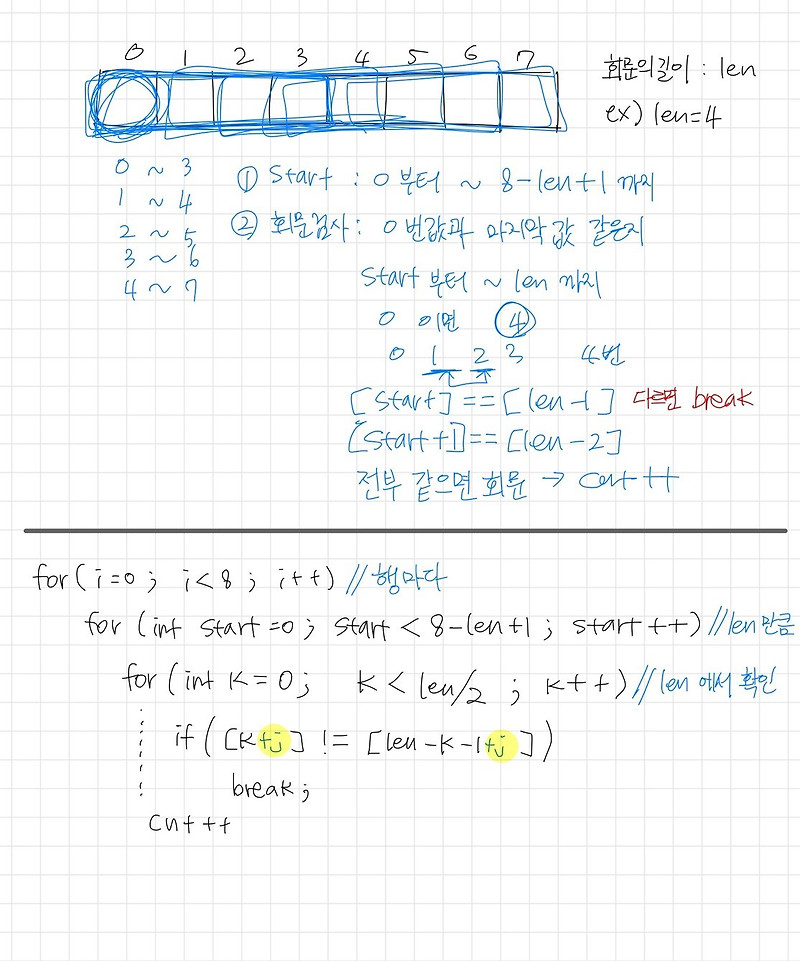 0 1 2 3 4 5 6 7
회문의길이 : len
ex) len=4
0 ~ 3
1 ~ 4
2 ~ 5
3 ~ 6
4 ~ 7
① Start : 0 부터 ~ 8-len+1 까지
② 회문검사 : 0 번값과 마지막 값 같은지
Start 부터 ~ len 까지
0 이면 ④
0 1 2 3 4번
[Start] == [len-1] 다르면 break
[Start+1] == [len-2]
전부 같으면 회문 → cnt ++
for ( i=0 ; i<8 ; i++) //행마다
for (int start=0; start < 8-len+1 ; start ++) //len만큼
for (int K = 0; K < len/2 ; K++) //len 에서 확인
if ( [K+j] != [len-K-1+j] )
break;
cnt ++